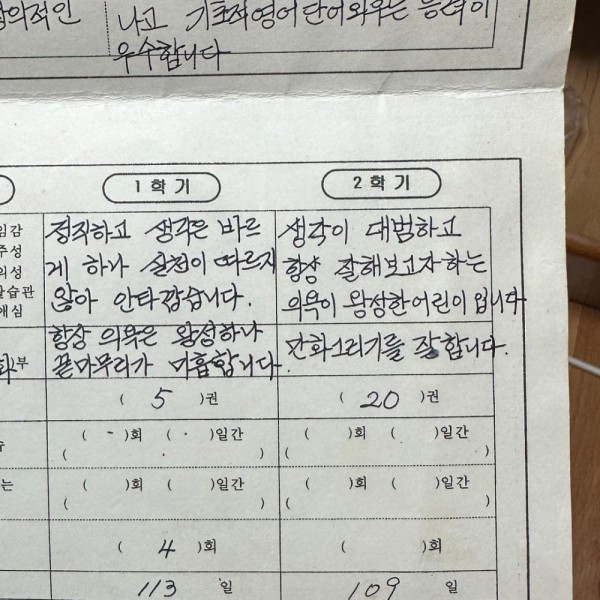 의적인 나고 기초적 영어 단어 외우는 능력이
우수합니다
1학기 2학기
임감 정직하고 생각은 바르 생각이 대범하고
주성 게 하나 실천이 따르지 항상 잘해보고자 하는
의성
활습관 않아 안타깝습니다. 의욕이 왕성한 어린이 입니다
애심
항상 의욕은 왕성하나
부 끝마무리가 미흡합니다. 만화그리기를 잘 합니다.
( 5 )권 ( 20 )권
( - )회 ( · )일간 ( )회 ( )일간
( ) ( )
는 ( )회 ( )일간 ( )회 ( )일간
( ) ( )
( 4 )회 ( )회
113 일 109 일